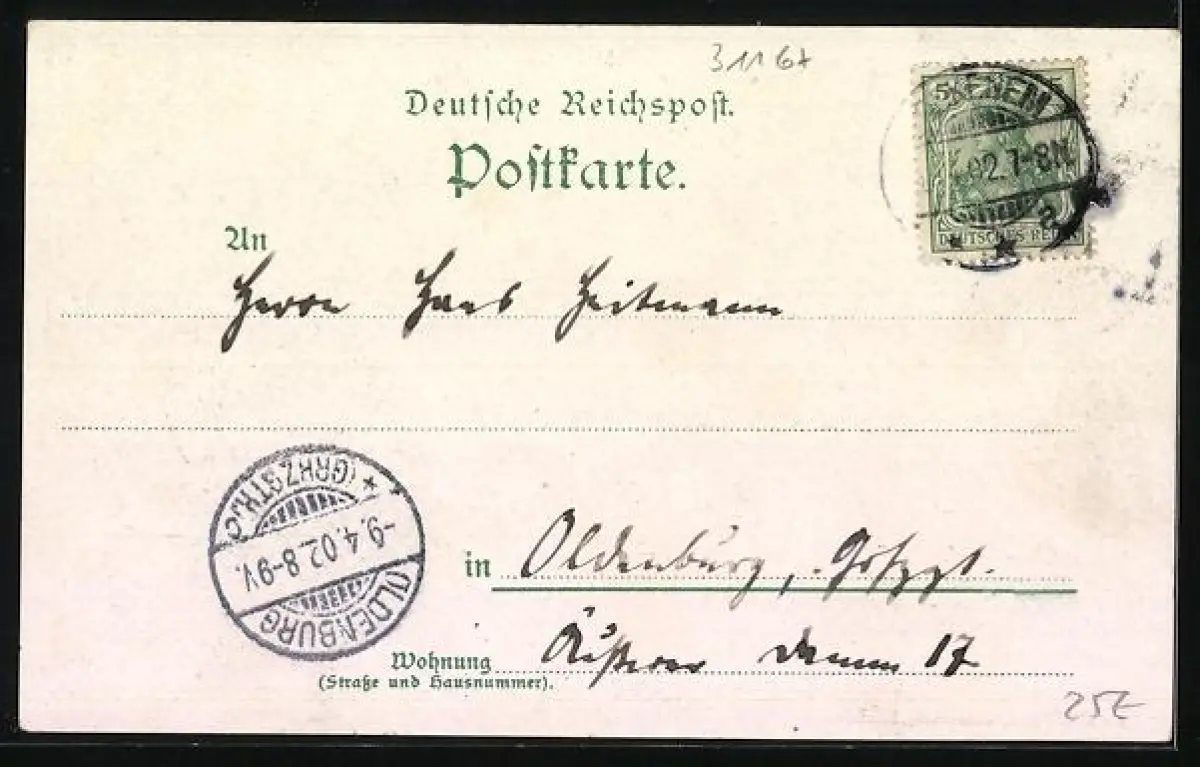 31167
Deutsche Reichspost.
Postkarte.
5 5
KENEM
02.7-8N.
a
DEUTSCHES REICH
An
Herrn Hans Heitmann
* (GRHZGTH.) C
-9.4.02.8-9V.
OLDENBURG
in Oldenburg, Grhzgt.
Wohnung Äusserer Damm 17
(Straße und Hausnummer).
25E